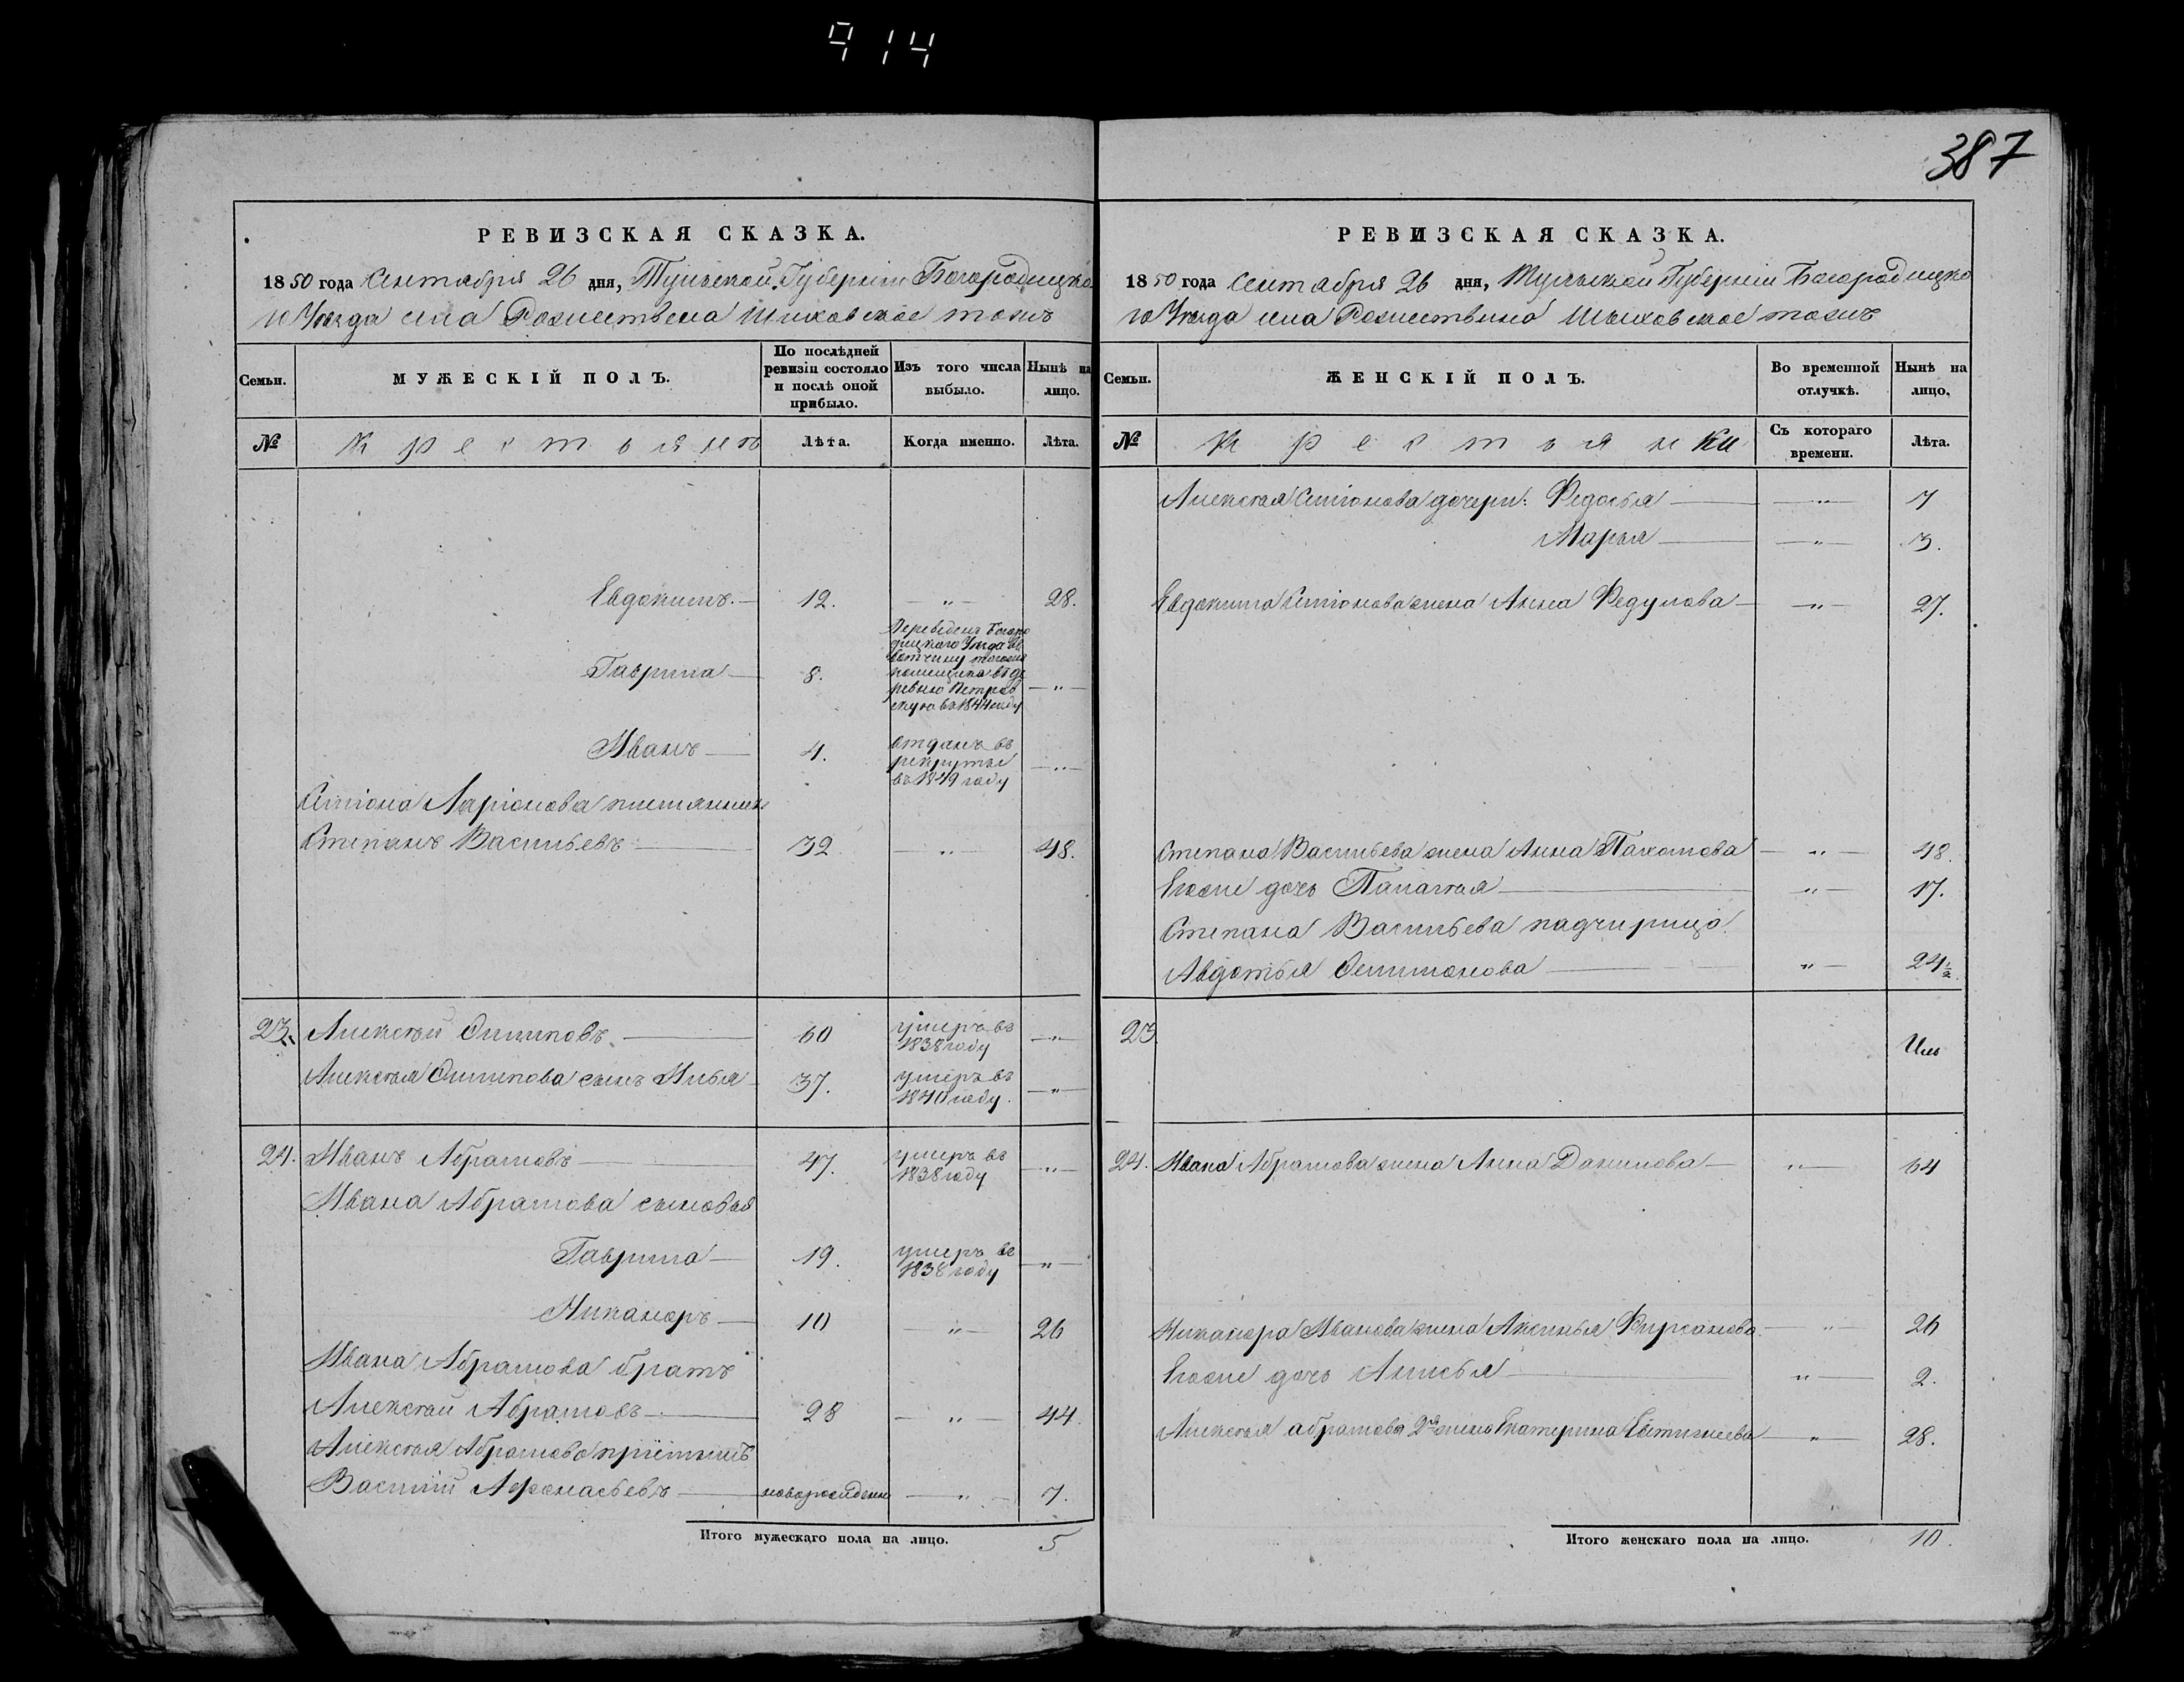 914
387
РЕВИЗСКАЯ СКАЗКА.
1850 года Сентября 26 дня, Тульской Губерніи Богородицка
го Уѣзда села Рожествена тожъ
Семьи.
МУЖЕСКІЙ ПОЛЪ.
По послѣдней ревизіи состояло и послѣ оной прибыло.
Изъ того числа выбыло.
Нынѣ на лицо.
№
Крестьянъ
Лѣта.
Когда именно.
Лѣта.
Евдокимъ 12. „ 28.
Гаврила 8. Переведенъ Богоро
дицкаго Уѣзда въ
вотчину тогожъ
помещика въ де
ревню Петров
скую въ 1844 году „
Иванъ 4. отданъ въ
рекруты
въ 1849 году „
Ларіонова племянникъ
Степанъ Васильевъ 32 „ 48.
23. Алексѣй Осиповъ 60 умеръ въ
1838 году „
Алексѣя Осипова сынъ Илья 37. умеръ въ
1840 году. „
24. Иванъ Абрамовъ 47. умеръ въ
1838 году „
Ивана Абрамова сыновья
Гаврила 19. умеръ въ
1838 году „
Никаноръ 10 „ 26
Ивана Абрамова братъ
Алексѣй Абрамовъ 28 „ 44.
Алексѣя Абрамова пріемышъ
Василій Афонасьевъ новорожденъ „ 7.
Итого мужескаго пола на лицо. 5
РЕВИЗСКАЯ СКАЗКА.
1850 года Сентября 26 дня, Тульской Губерніи Богородицка
го Уѣзда села Рожествина тожъ
Семьи.
ЖЕНСКІЙ ПОЛЪ.
Во временной отлучкѣ.
Нынѣ на лицо.
№
Крестьянки
Съ котораго времени.
Лѣта.
Алексѣя дочери: Федосья „ 7
Марья „ 3.
Евдокима жена Анна Федулова „ 27.
Степана Васильева жена Анна Пахомова „ 48.
Егоже дочь Палагѣя „ 17.
Степана Васильева падчирица
Авдотья „ 24½.
23.
24. Ивана Абрамова жена Анна Данилова „ 64
Никанора Иванова жена Аксинья Фирсанова „ 26
Егоже дочь Анисья „ 2.
Алексѣя абрамова 2я жена Екатерина „ 28.
Итого женскаго пола на лицо. 10.